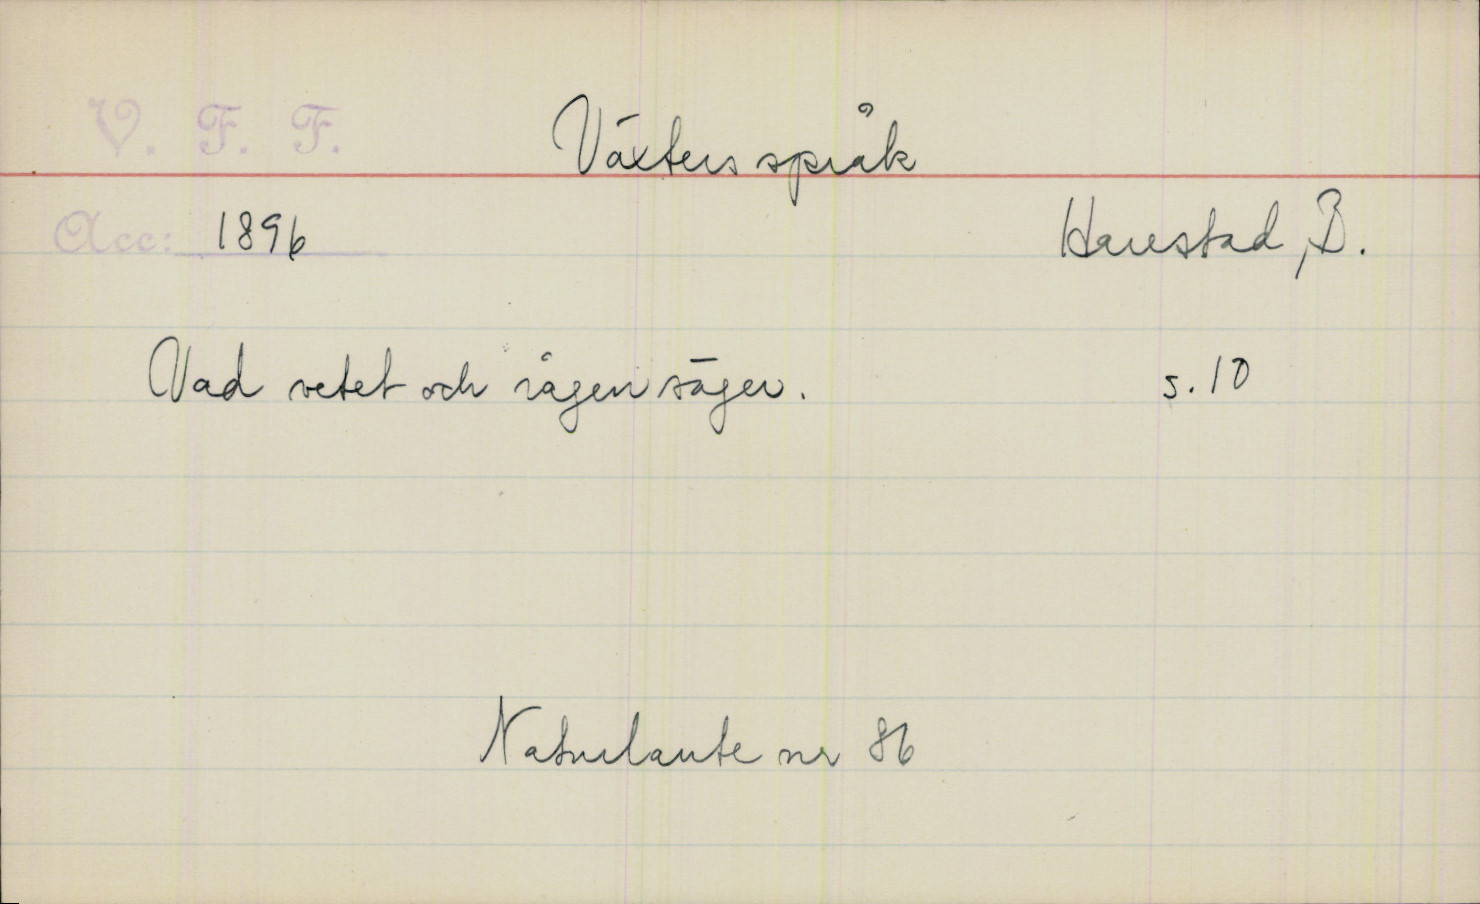 V. F. F.
Växters språk
Acc: 1896
Harestad, B.
Vad vetet och rågen säger. s. 10
Naturlaute nr 86